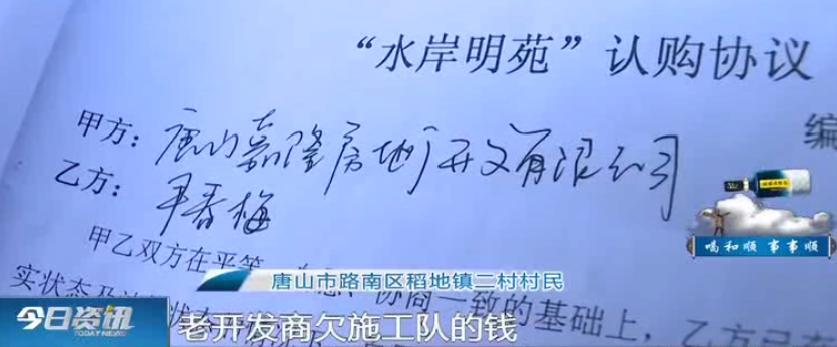 “水岸明苑”认购协议
编
甲方：唐山嘉隆房地产开发有限公司
乙方：
甲乙双方在平等
协商一致的基础上，乙方已在
喝和顺 事事顺
唐山市路南区稻地镇二村村民
今日资讯
TODAY NEWS
老开发商欠施工队的钱